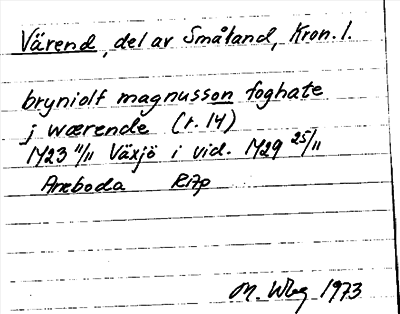 Värend, del av Småland, Kron. l.
bryniolf magnusson foghate
j wærende (r. 14)
M23 11/11 Växjö i vid. M29 25/11
Aneboda RAp
M. Wbg 1973